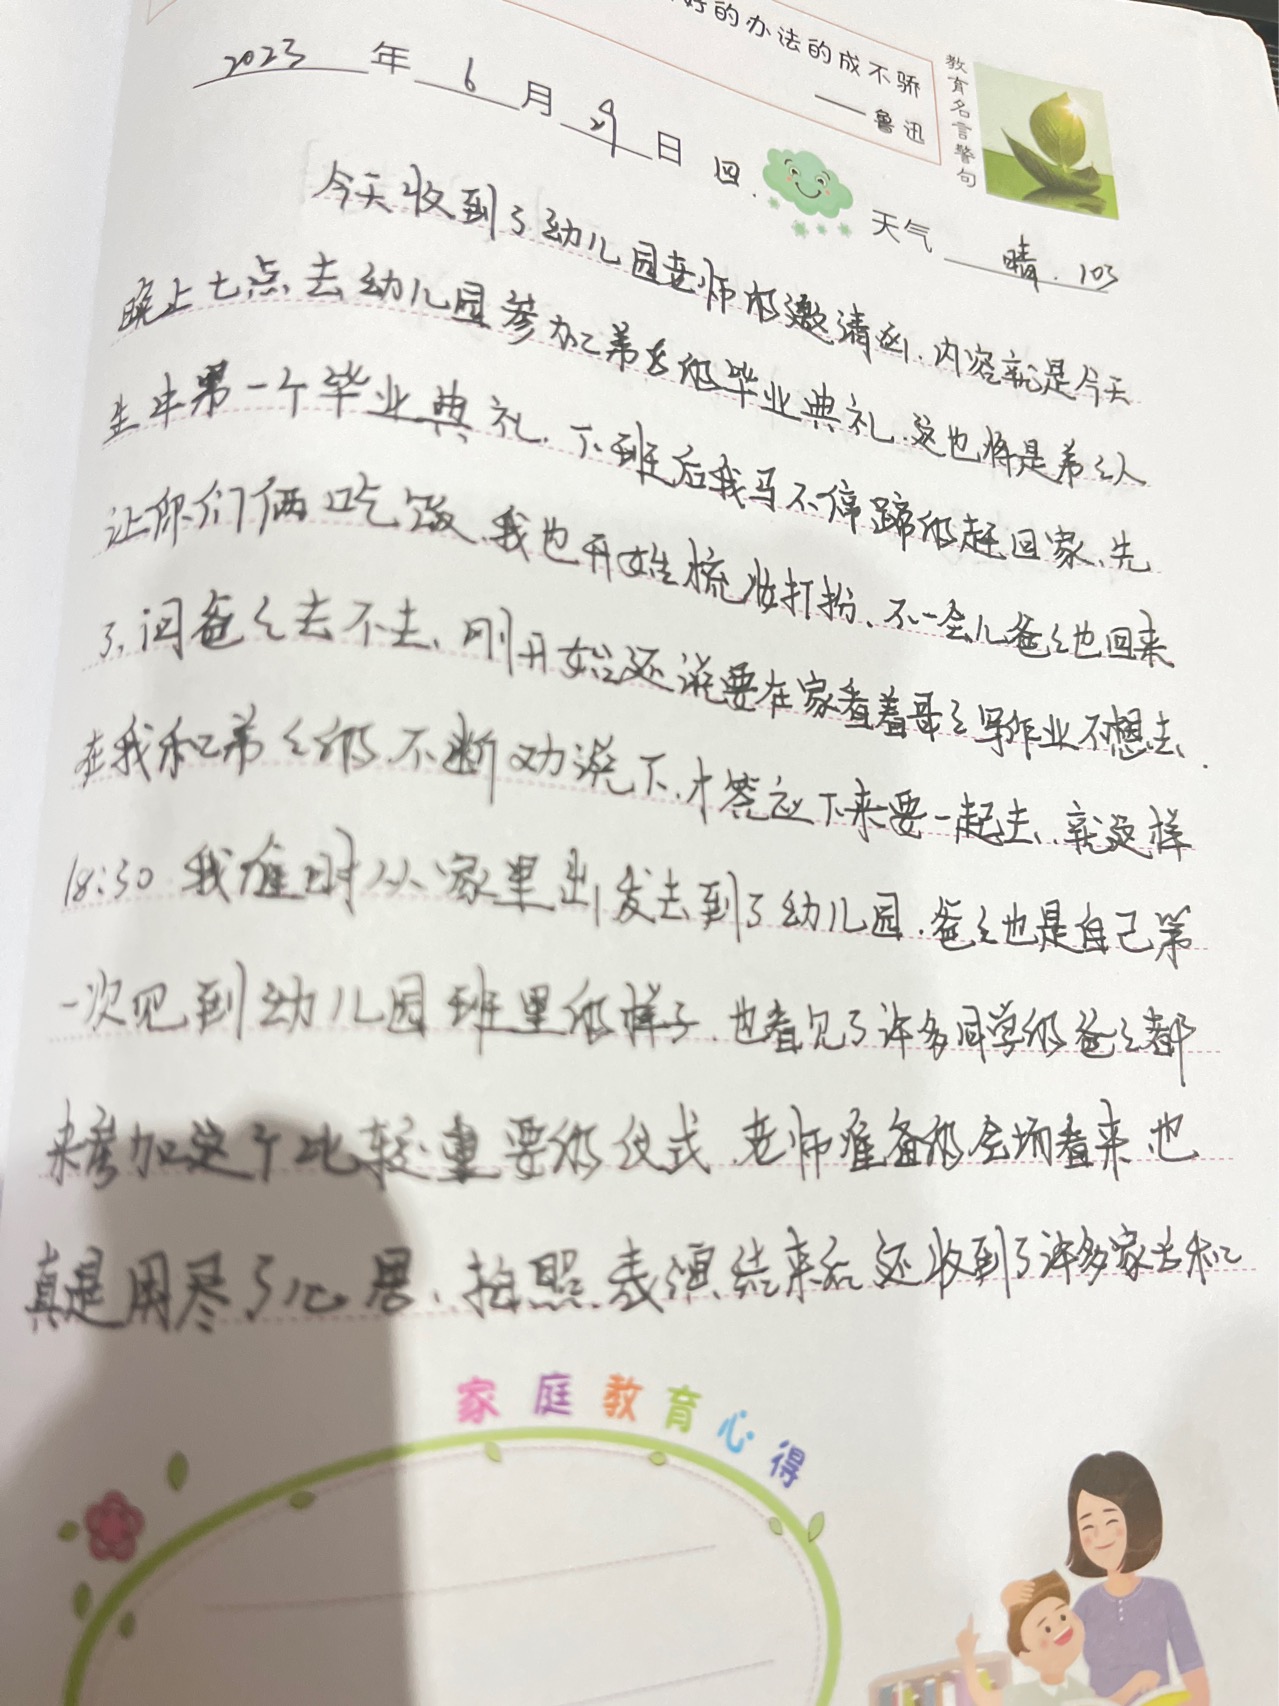 好的办法的成不骄
——鲁迅
教育名言警句
2023年6月29日 四. 天气 晴. 103
今天收到了幼儿园老师的邀请函.内容就是今天
晚上七点去幼儿园参加弟弟的毕业典礼.这也将是弟弟人
生中第一个毕业典礼.下班后我马不停蹄的赶回家、先
让你们俩吃饭.我也开始梳妆打扮、不一会儿爸爸也回来
了,问爸爸去不去、刚开始还说要在家看着哥哥写作业不想去.
在我和弟弟的不断劝说下.才答应下来要一起去、就这样
18:30 我准时从家里出发去到了幼儿园.爸爸也是自己第
一次见到幼儿园班里的样子.也看见了许多同学的爸爸都
来参加这个比较重要的仪式.老师准备的会场看来也
真是用尽了心思.拍照.表演.结束后还收到了许多家长和
家庭教育心得